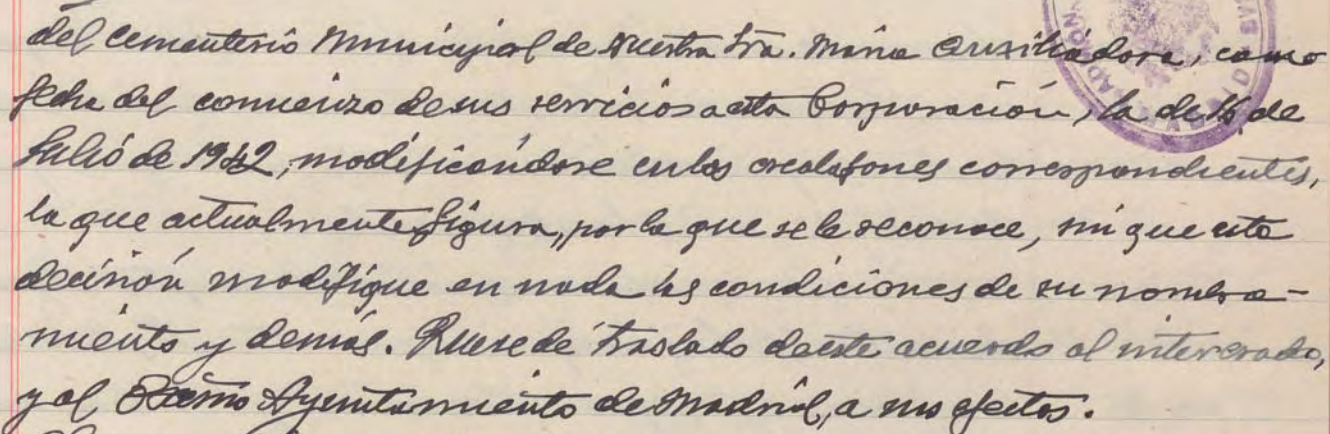 del cementerio Municipal de Nuestra Sra. María Auxiliadora, como
fecha del comienzo de sus servicios a esta Corporación, la de 16 de
Julio de 1942, modificándose en los escalafones correspondientes,
la que actualmente figura, por la que se le reconoce, sin que esta
decisión modifique en nada las condiciones de su nombra-
miento y demás. Que se dé traslado de este acuerdo al interesado,
y al Excmo Ayuntamiento de Madrid, a sus efectos.